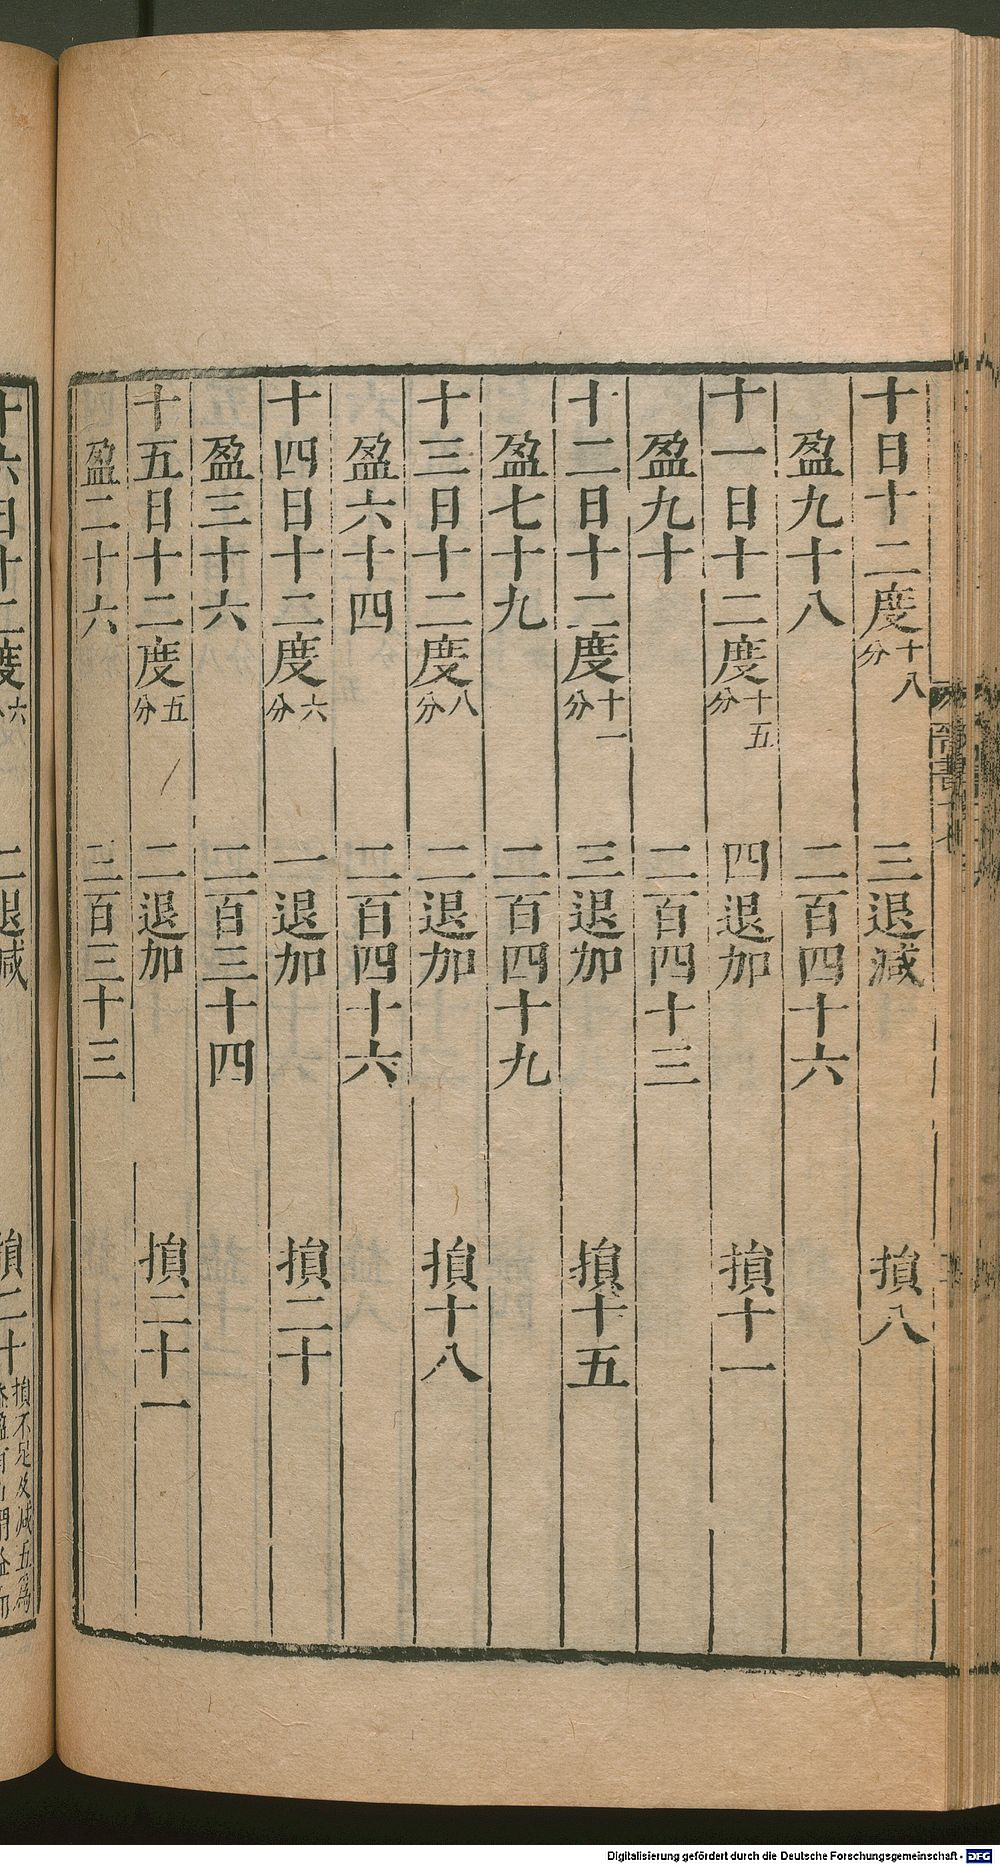 十日十二度十八分 三退減 損八
盈九十八 二百四十六
十一日十二度十五分 四退加 損十一
盈九十 二百四十三
十二日十二度十一分 三退加 損十五
盈七十九 二百四十九
十三日十二度八分 二退加 損十八
盈六十四 二百四十六
十四日十二度六分 一退加 損二十
盈三十六 二百三十四
十五日十二度五分 二退加 損二十一
盈二十六 二百三十三
十六日十二度六 二退減 損二十
損不足反減五爲
Digitalisierung gefördert durch die Deutsche Forschungsgemeinschaft - DFG